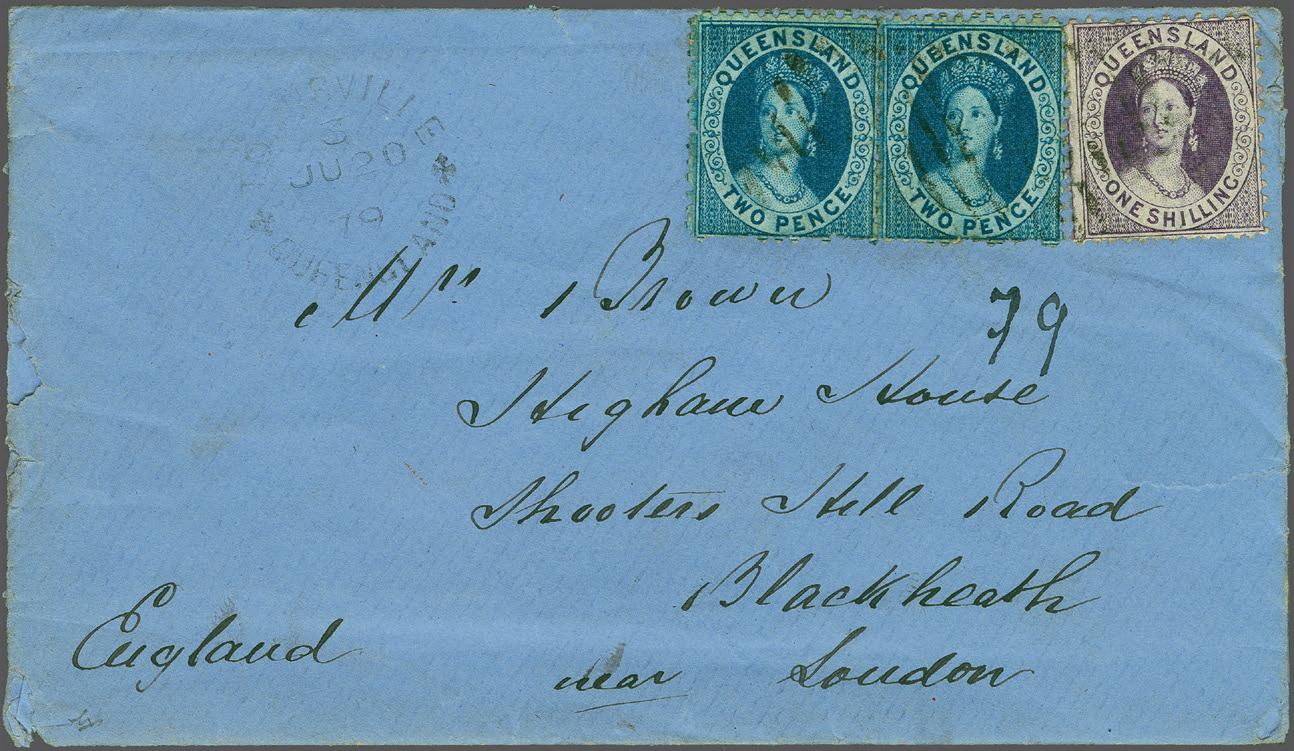 QUEENSLAND TWO PENCE
QUEENSLAND TWO PENCE
QUEENSLAND ONE SHILLING
3
JU 20
79
QUEENSLAND
Brown
79
Higham House
Shooters Hill Road
Blackheath
near London
England